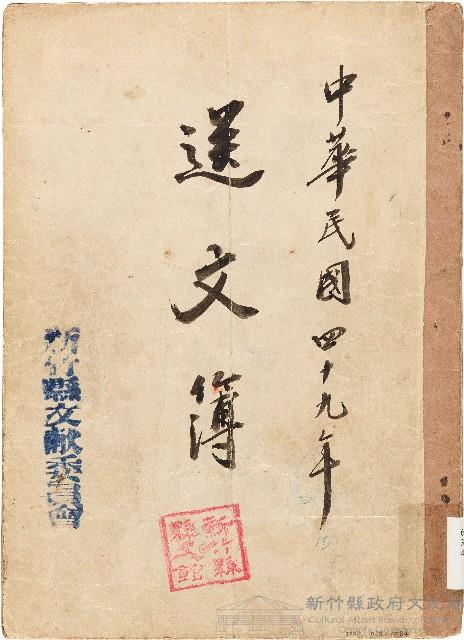 中華民國四十九年
送文簿
新竹縣文獻委員會
新竹縣
縣史館
新竹縣政府文化局
Cultural Affairs Bureau of